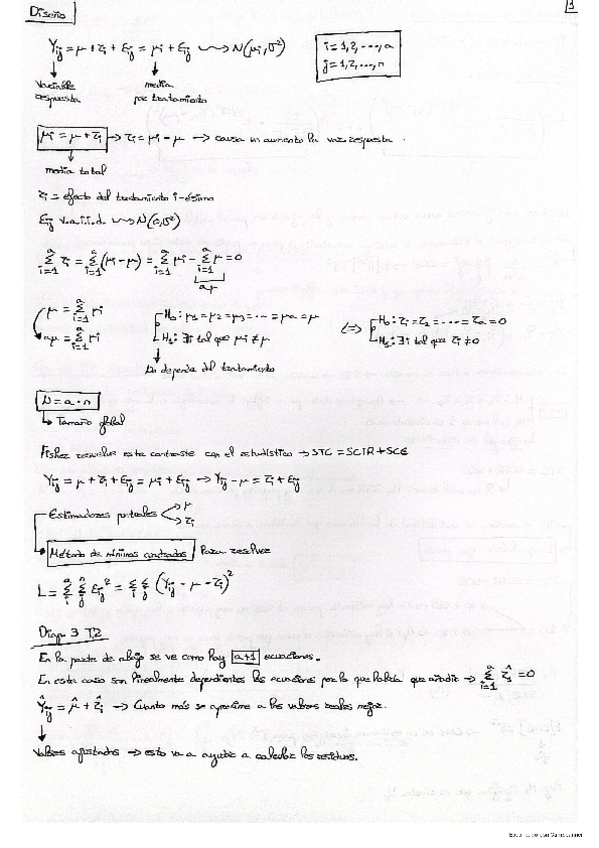 Diseño
1
Yij = μ + τi + εij = μi + εij ⟿ N(μi, σ²)
i = 1,2,...,a
j = 1,2,...,n
Variable respuesta
media por tratamiento
μi = μ + τi → τi = μi − μ → causa un aumento la var. respuesta.
media total
τi = efecto del tratamiento i-ésimo
εij v.a.i.i.d. ⟿ N(0,σ²)
∑_{i=1}^{a} τi = ∑_{i=1}^{a} (μi − μ) = ∑_{i=1}^{a} μi − ∑_{i=1}^{a} μ = 0
aμ
μ = ∑_{i=1}^{a} μi
aμ = ∑_{i=1}^{a} μi
H0: μ1 = μ2 = μ3 = ... = μa = μ
H1: ∃i tal que μi ≠ μ
⟺
H0: τ1 = τ2 = .... = τa = 0
H1: ∃i tal que τi ≠ 0
No depende del tratamiento
N = a · n
Tamaño global
Fisher resuelve este contraste con el estadístico → STC = SCTR + SCE
Yij = μ + τi + εij = μi + εij → Yij − μ = τi + εij
Estimadores puntuales
μ
τi
Método de mínimos cuadrados Para resolver
L = ∑_{i}^{a} ∑_{j}^{n} εij² = ∑_{i} ∑_{j} (Yij − μ − τi)²
Diap. 3 T.2
En la parte de abajo se ve como hay a+1 ecuaciones.
En este caso son linealmente dependientes las ecuaciones por lo que habría que añadir → ∑_{i=1}^{a} τ̂i = 0
Ŷij = μ̂ + τ̂i → Cuanto más se aproxime a los valores reales mejor.
Valores ajustados → esto va a ayudar a calcular los residuos.